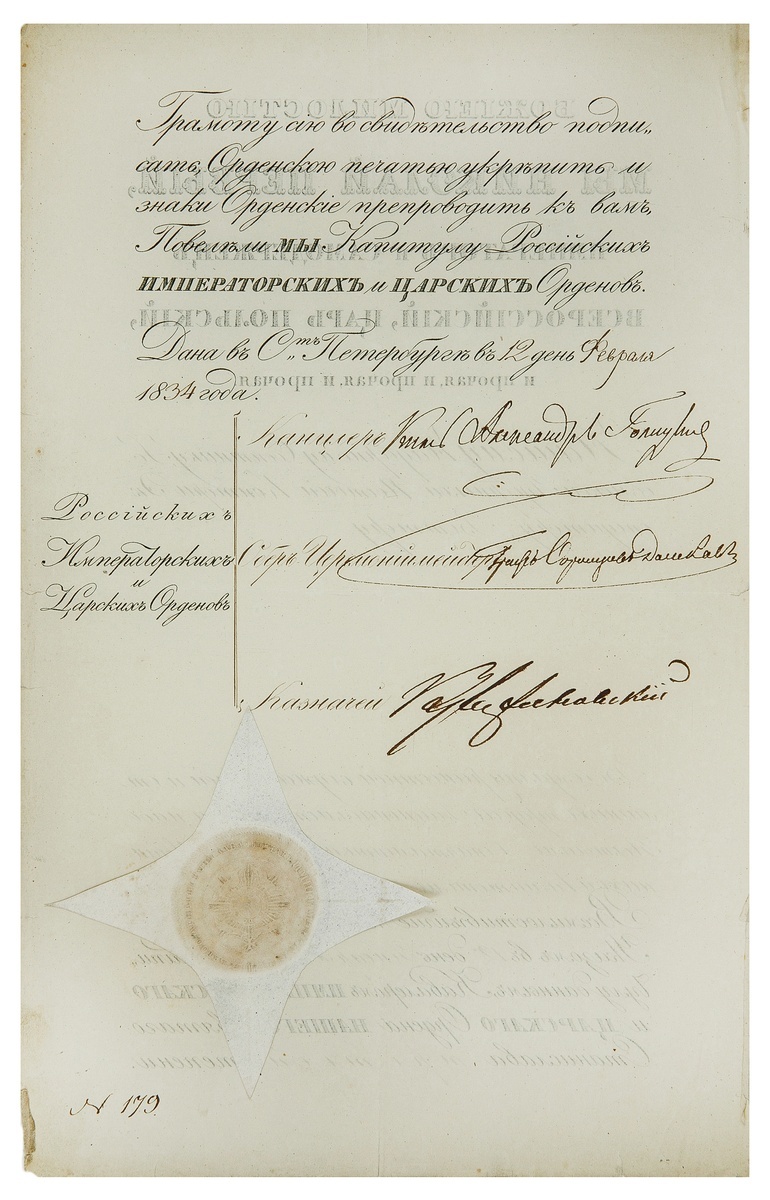 Грамоту сію во свидѣтельство подпи„
сать, Орденскою печатью укрѣпить и
знаки Орденскіе препроводить къ вамъ,
Повелѣли МЫ Капитулу Россійскихъ
ИМПЕРАТОРСКИХЪ и ЦАРСКИХЪ Орденовъ.
Дана въ С„тъ Петербургѣ въ 12 день Февраля
1834 года.
Канцлеръ Князь Александръ Голицынъ
Россійскихъ
Императорскихъ
и
Царскихъ Орденовъ
Обръ Церемоніймейстеръ Графъ Воронцовъ Дашковъ
Казначей
N 179